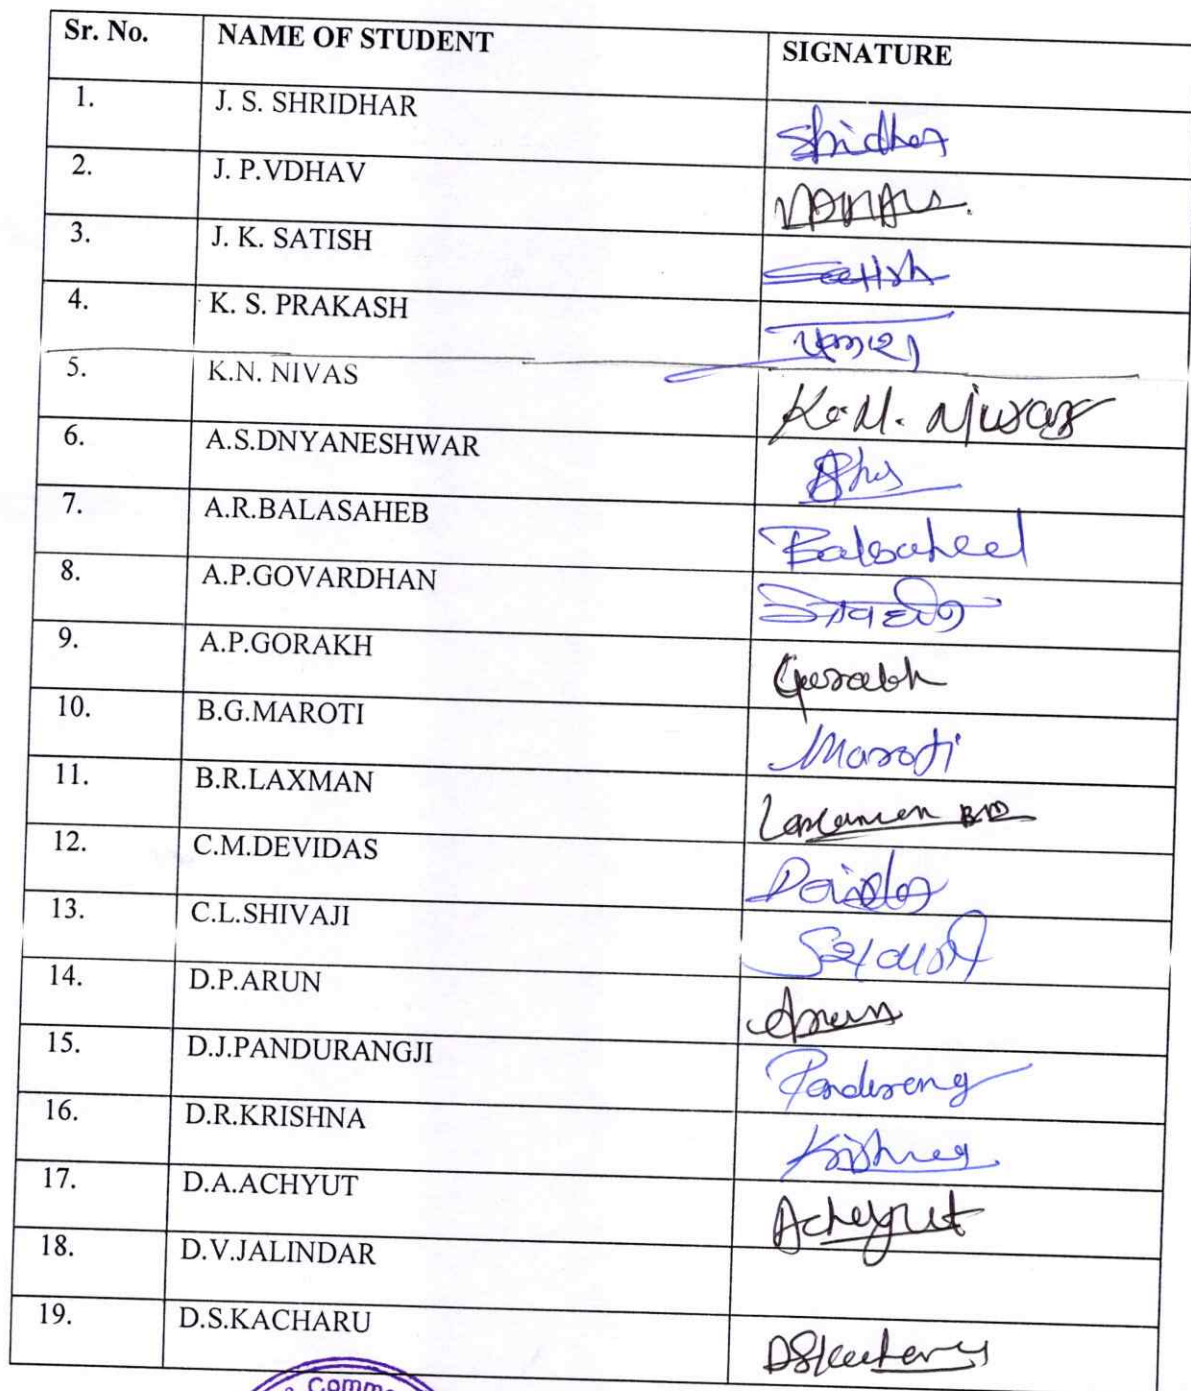 Sr. No. NAME OF STUDENT SIGNATURE
1. J. S. SHRIDHAR Shridhar
2. J. P.VDHAV
3. J. K. SATISH Satish
4. K. S. PRAKASH
5. K.N. NIVAS K.N. Niwas
6. A.S.DNYANESHWAR
7. A.R.BALASAHEB
8. A.P.GOVARDHAN
9. A.P.GORAKH
10. B.G.MAROTI Maroti
11. B.R.LAXMAN
12. C.M.DEVIDAS
13. C.L.SHIVAJI
14. D.P.ARUN Arun
15. D.J.PANDURANGJI Pandurang
16. D.R.KRISHNA Krishna
17. D.A.ACHYUT Achyut
18. D.V.JALINDAR
19. D.S.KACHARU